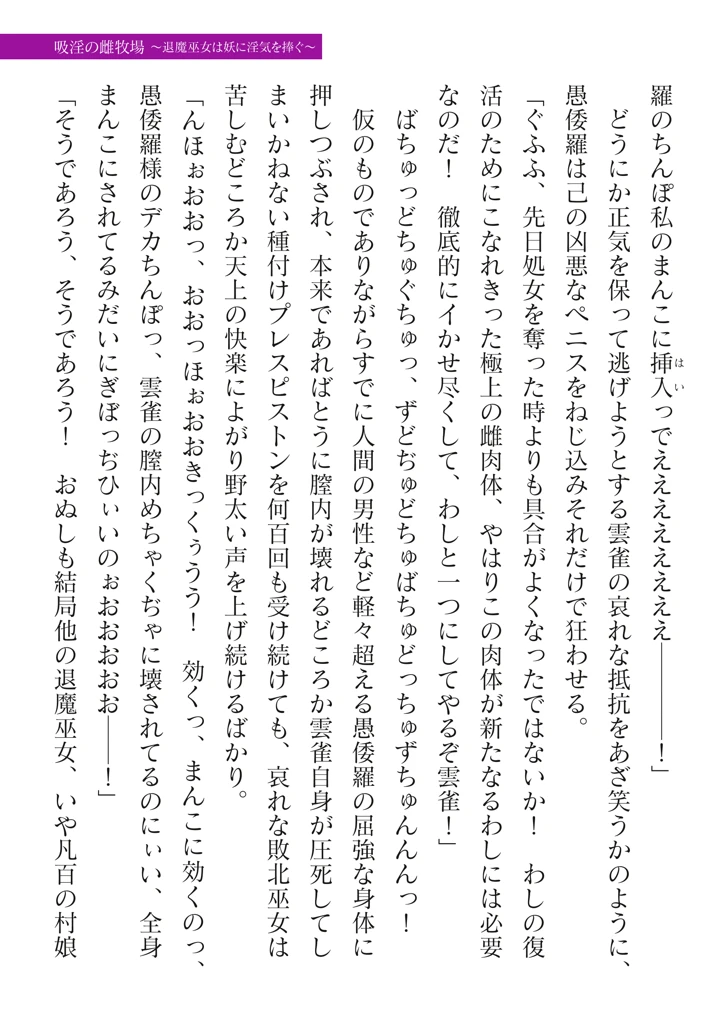 吸淫の雌牧場 ～退魔巫女は妖に淫気を捧ぐ～
羅のちんぽ私のまんこに挿入っでえええええええ――――！」
　どうにか正気を保って逃げようとする雲雀の哀れな抵抗をあざ笑うかのように、
愚倭羅は己の凶悪なペニスをねじ込みそれだけで狂わせる。
「ぐふふ、先日処女を奪った時よりも具合がよくなったではないか！　わしの復
活のためにこなれきった極上の雌肉体、やはりこの肉体が新たなるわしには必要
なのだ！　徹底的にイかせ尽くして、わしと一つにしてやるぞ雲雀！」
　ばちゅっどちゅぐちゅっ、ずどぢゅどちゅばちゅどっちゅずちゅんんんっ！
　仮のものでありながらすでに人間の男性など軽々超える愚倭羅の屈強な身体に
押しつぶされ、本来であればとうに膣内が壊れるどころか雲雀自身が圧死してし
まいかねない種付けプレスピストンを何百回も受け続けても、哀れな敗北巫女は
苦しむどころか天上の快楽によがり野太い声を上げ続けるばかり。
「んほぉおおっ、おおっほぉおおきっくぅうう！　効くっ、まんこに効くのっ、
愚倭羅様のデカちんぽっ、雲雀の膣内めちゃくぢゃに壊されてるのにぃい、全身
まんこにされてるみだいにぎぼっぢひぃいのぉおおおおお――！」
「そうであろう、そうであろう！　おぬしも結局他の退魔巫女、いや凡百の村娘